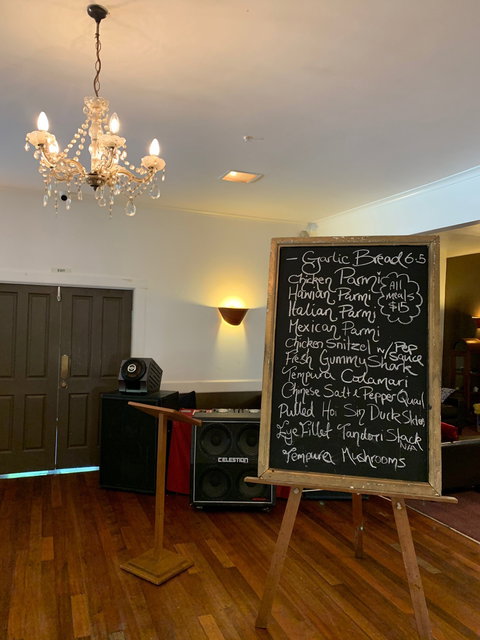 EXIT
- Garlic Bread 6.5
Chicken Parmi
Hawiian Parmi
Italian Parmi
Mexican Parmi
Chicken Snitzel w/ Pep Sauce
Fresh Gummy Shark
Tempura Calamari
Chinese Salt & Pepper Quail
Pulled Hoi Sin Duck
Eye Fillet Tandori Stack N/A
Tempura Mushrooms
All meals $15
CELESTION